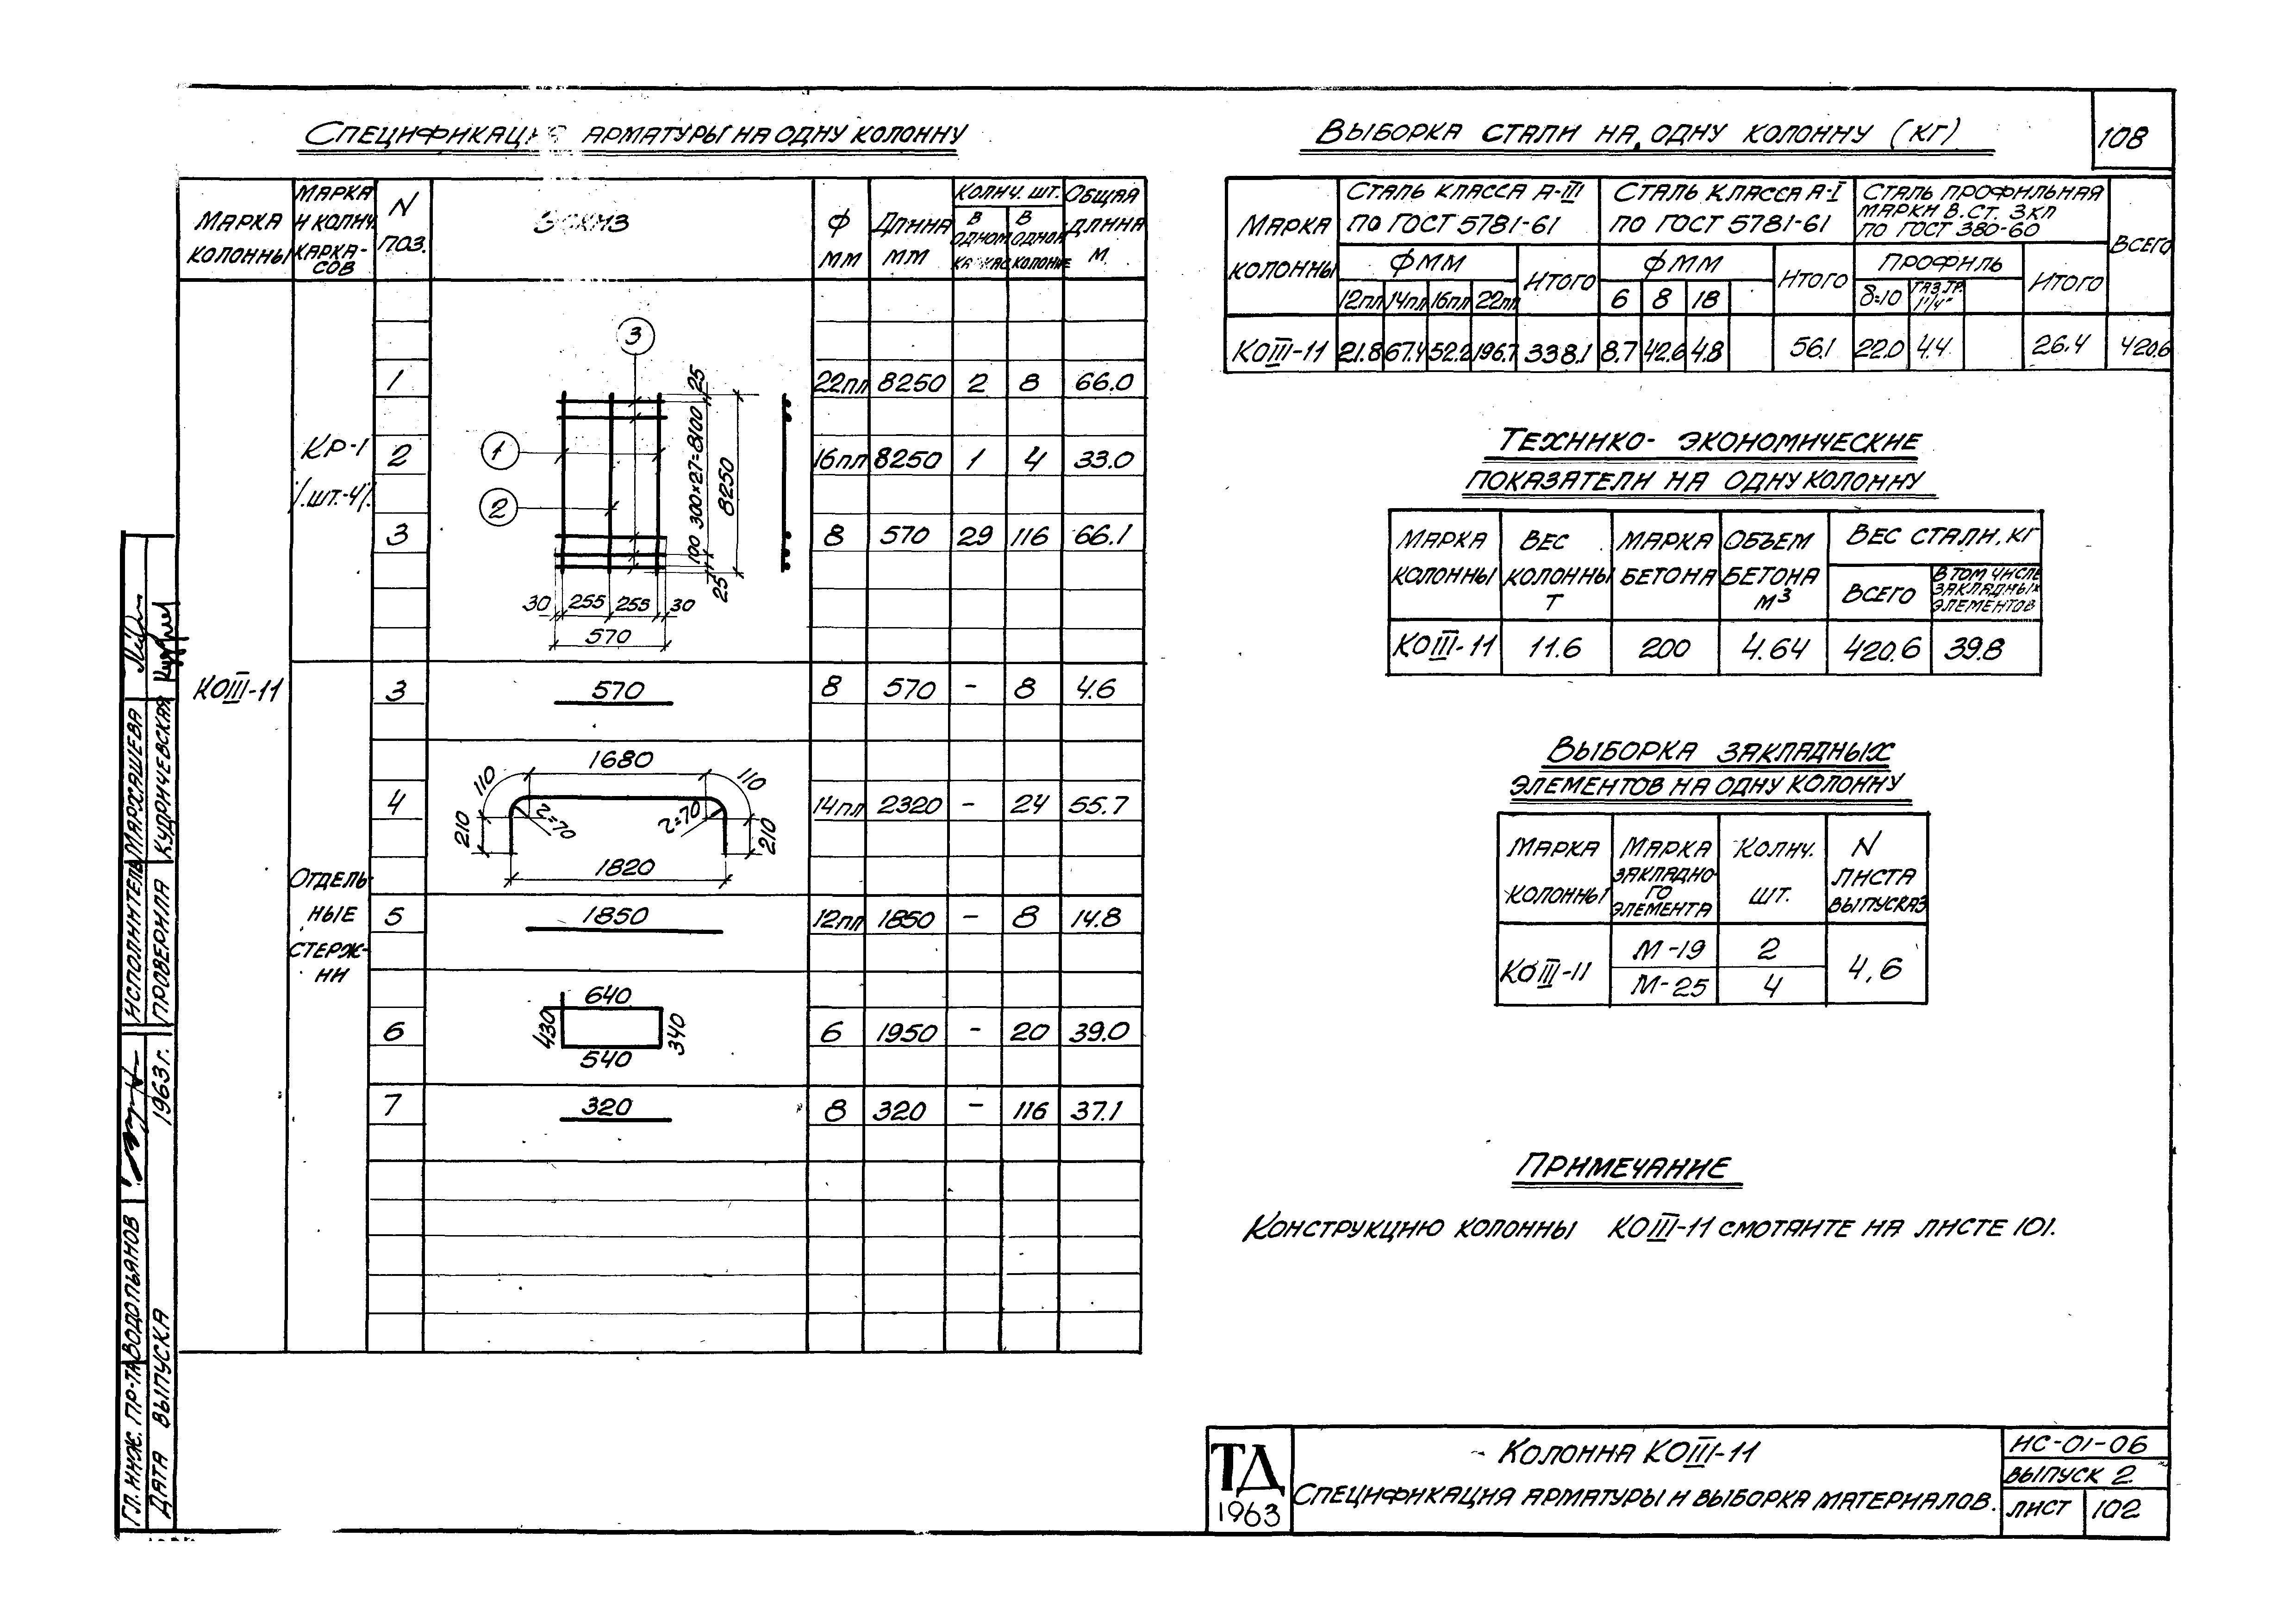 108
Спецификация арматуры на одну колонну
Марка колонны
Марка и колич. каркасов
N поз.
Эскиз
Ф мм
Длина мм
Колич. шт.
в одном каркас
в одной колонне
Общая длина м
КОIII-11
КР-1
/шт.-4/.
1 22пл 8250 2 8 66.0
2 16пл 8250 1 4 33.0
3 8 570 29 116 66.1
3
1
2
25
100 300×27=8100
8250
25
30 255 255 30
570
3 570 8 570 - 8 4.6
Отдельные стержни
1680
110 110
4 14пл 2320 - 24 55.7
210 r=70 r=70 210
1820
5 1850 12пл 1850 - 8 14.8
640
430 340
6 6 1950 - 20 39.0
540
7 320 8 320 - 116 37.1
Выборка стали на одну колонну (кг)
Марка колонны
Сталь класса А-III по ГОСТ 5781-61
Сталь класса А-I по ГОСТ 5781-61
Сталь профильная марки В.Ст. 3кп по ГОСТ 380-60
Всего
Ф мм Итого Ф мм Итого Профиль Итого
12пл 14пл 16пл 22пл 6 8 18 δ=10 Газ.тр. 1¼"
КОIII-11 21.8 67.4 52.2 196.7 338.1 8.7 42.6 4.8 56.1 22.0 4.4 26.4 420.6
Технико-экономические
показатели на одну колонну
Марка колонны
Вес колонны т
Марка бетона
Объем бетона м³
Вес стали, кг
Всего
В том числе закладных элементов
КОIII-11 11.6 200 4.64 420.6 39.8
Выборка закладных
элементов на одну колонну
Марка колонны
Марка закладного элемента
Колич. шт.
N листа выпуска 3
КОIII-11
М-19 2
М-25 4
4,6
Примечание
Конструкцию колонны КОIII-11 смотрите на листе 101.
ТД
1963
Колонна КОIII-11
Спецификация арматуры и выборка материалов.
ИС-01-06
Выпуск 2
Лист 102
Гл. инж. пр-та Водопьянов
Дата выпуска 1963г.
Исполнитель Мархашева
Проверила Кудричевская